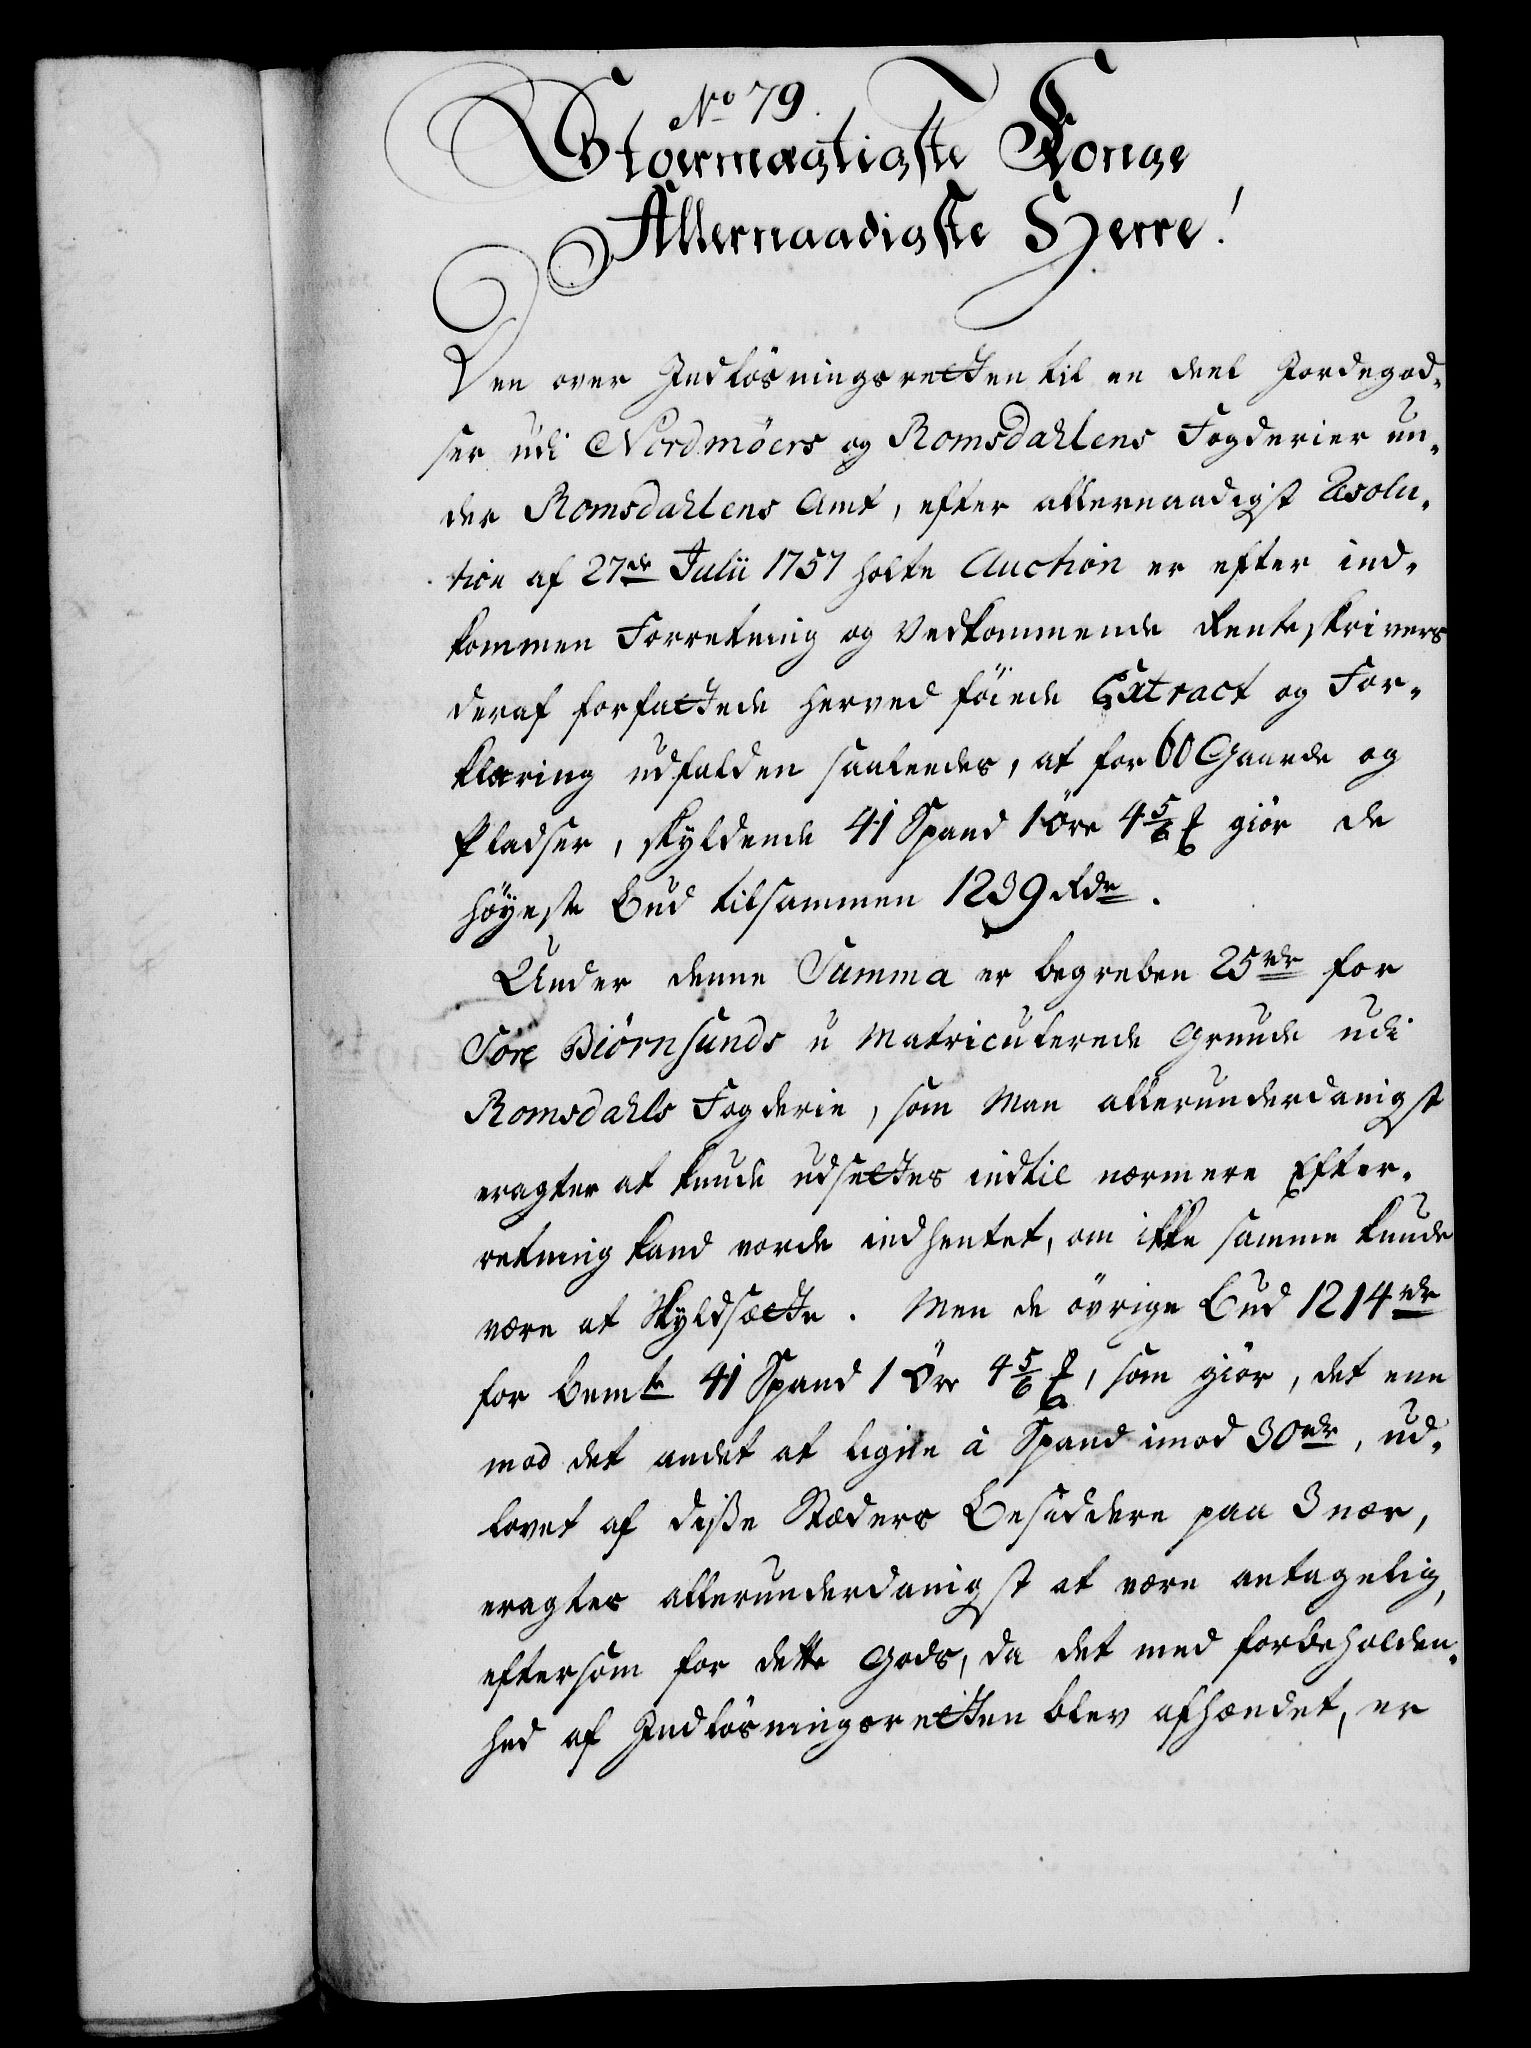 No 79.
Stormægtigste Konge
Allernaadigste Herre!
Den over Indlösningsretten til en deel Jordegod-
ser udi Nordmöers og Romsdahlens Fogderier un-
der Romsdahlens Amt, efter allernaadigst Resolu-
tion af 27de Julii 1757 holte Auction er efter ind-
kommen Forretning og Vedkommende Renteskrivers
deraf forfattede herved föiede Extract og For-
klaring udfalden saaledes, at for 60 Gaarde og
Pladser, skyldende 41 Spand 1 Öre 4 5/6 giör de
höyeste Bud tilsammen 1239 Rdr.
Under denne Summa er begreben 25 rdr for
Söre Biörnsunds u Matriculerede Grunde udi
Romsdahls Fogderie, som Man allerunderdanigst
eragter at kunde udsettes indtil nærmere Efter-
retning kand vorde indhentet, om ikke samme kunde
være at skyldsætte. Men de övrige Bud 1214 rdr
for bemte 41 Spand 1 Öre 4 5/6, som giör, det ene
mod det andet at ligne à Spand imod 30 rdr, ud-
lovet af disse Stæders Besiddere paa 3 nær,
eragtes allerunderdanigst at være antagelig,
eftersom for dette Gods, da det med forbeholden-
hed af Indlösningsretten blev afhændet, er